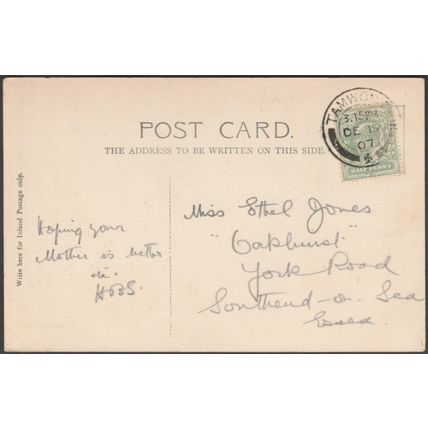 POST CARD.
THE ADDRESS TO BE WRITTEN ON THIS SIDE.
Write here for Inland Postage only.
Hoping your
Mother is better
etc.
HBS.
Miss Ethel Jones
"Oakhurst"
York Road
Southend-on-Sea
Essex.
TAMWO
3.15PM
DE 19
07
HALF PENNY